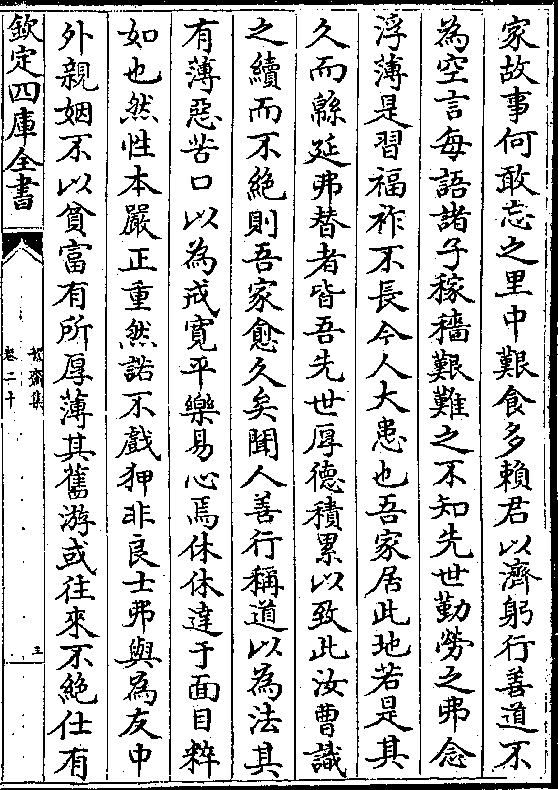 家故事何敢忘之里中艱食多賴君以濟躬行善道不
為空言每語諸子稼穡艱難之不知先世勤勞之弗念
浮薄是習福祚不長今人大患也吾家居此地若是其
久而緜延弗替者皆吾先世厚德積累以致此汝曹識
之續而不絕則吾家愈久矣聞人善行稱道以為法其
有薄惡苦口以為戒寬平樂易心焉休休達于面目粹
如也然性本嚴正重然諾不戲狎非良士弗與為友中
外親姻不以貧富有所厚薄其舊游或往來不絕仕有
欽定四庫全書
絜齋集
卷二十